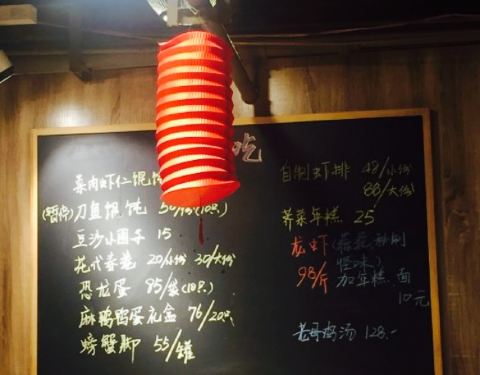 吃
菜肉虾仁馄饨
(暂停)刀鱼馄饨 50/份(10只)
豆沙小圆子 15
花式春卷 20/小份 30/大份
恐龙蛋 85/袋(10只)
麻鸭鸭蛋礼盒 76/20只
螃蟹脚 55/罐
自制虾排 48/小份
88/大份
荠菜年糕 25
龙虾(
98/斤 加年糕、面
10元
老母鸡汤 128.-